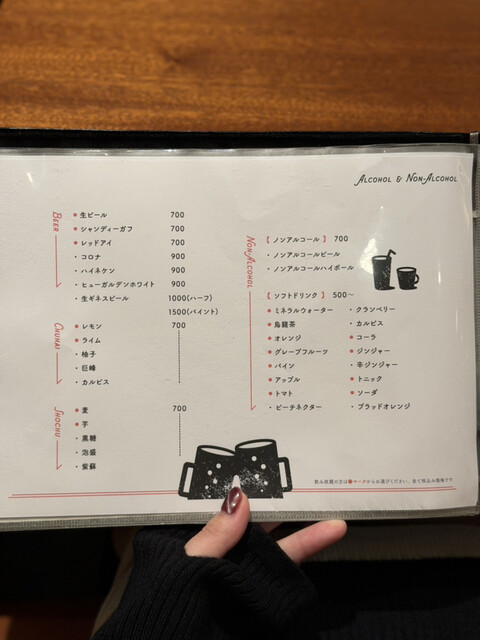 ALCOHOL & NON-ALCOHOL
BEER
• 生ビール 700
• シャンディーガフ 700
• レッドアイ 700
・コロナ 900
・ハイネケン 900
・ヒューガルデンホワイト 900
・生ギネスビール 1000(ハーフ)
1500(パイント)
CHUHAI
• レモン 700
• ライム
・柚子
・巨峰
・カルピス
SHOCHU
• 麦 700
• 芋
・黒糖
・泡盛
・紫蘇
NON-ALCOHOL
【 ノンアルコール 】 700
・ノンアルコールビール
・ノンアルコールハイボール
【 ソフトドリンク 】 500〜
• ミネラルウォーター
• 烏龍茶
• オレンジ
• グレープフルーツ
• パイン
• アップル
• トマト
・ピーチネクター
・クランベリー
・カルピス
• コーラ
• ジンジャー
・辛ジンジャー
• トニック
• ソーダ
・ブラッドオレンジ
飲み放題の方は●マークからお選びください。全て税込み価格です